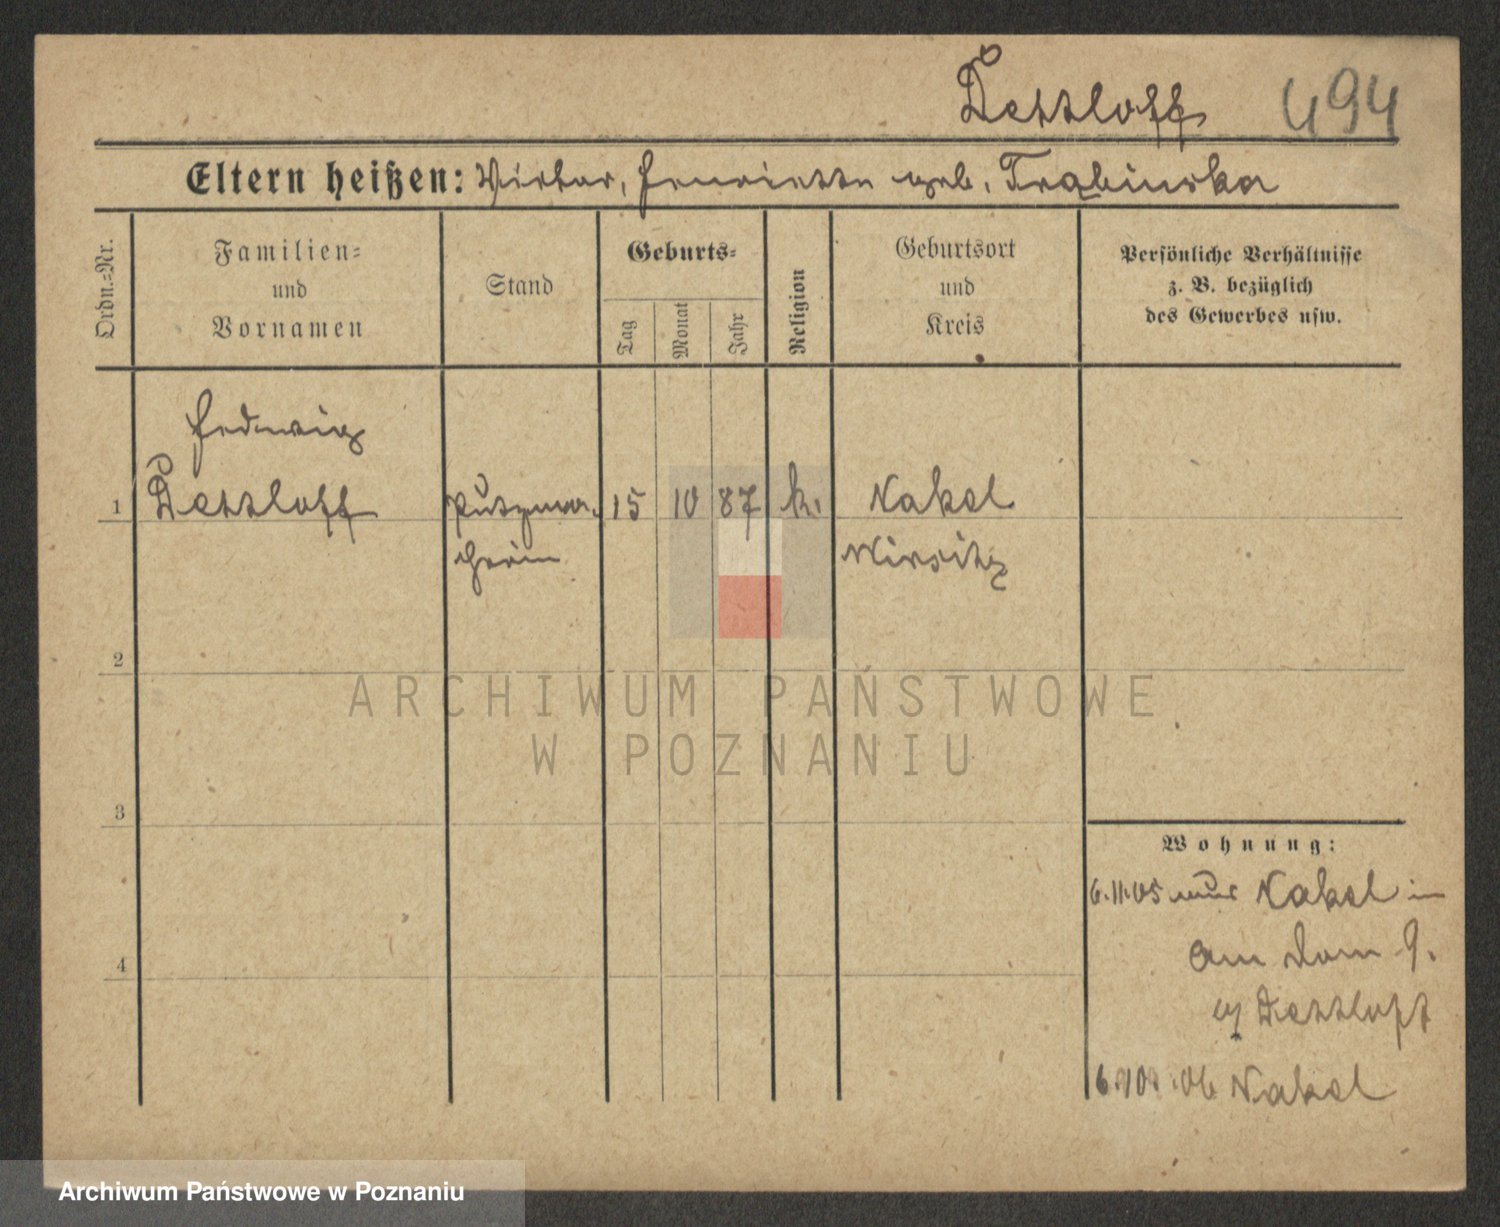 Dettloff 494
Eltern heißen: Victor, Henriette geb. Trąbinska
Ordn.=Nr.
Familien=
und
Vornamen
Stand
Geburts=
Tag
Monat
Jahr
Religion
Geburtsort
und
Kreis
Persönliche Verhältnisse
z. B. bezüglich
des Gewerbes usw.
Hedwig
1 Dettloff Putzma- 15 10 87 k. Nakel
cherin Wirsitz
2
3
4
ARCHIWUM PAŃSTWOWE
W POZNANIU
Wohnung:
6.11.05 aus Nakel in
Am Dom 9.
Dettloff
6.10.06 Nakel
Archiwum Państwowe w Poznaniu